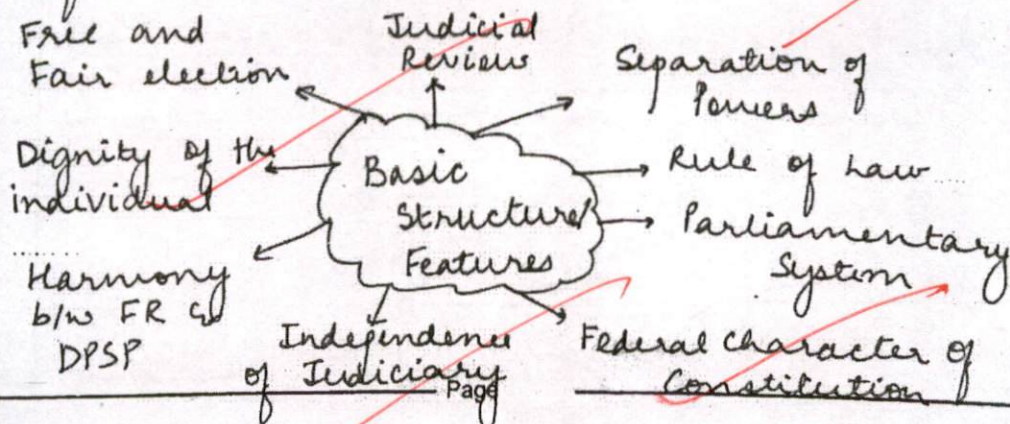 Free and
Fair election
Judicial
Review
Separation of
Powers
Dignity of the
individual
Basic
Structure/
Features
Rule of Law
Parliamentary
System
Harmony
b/w FR &
DPSP
Independence
of Judiciary
Federal Character of
Constitution
Page